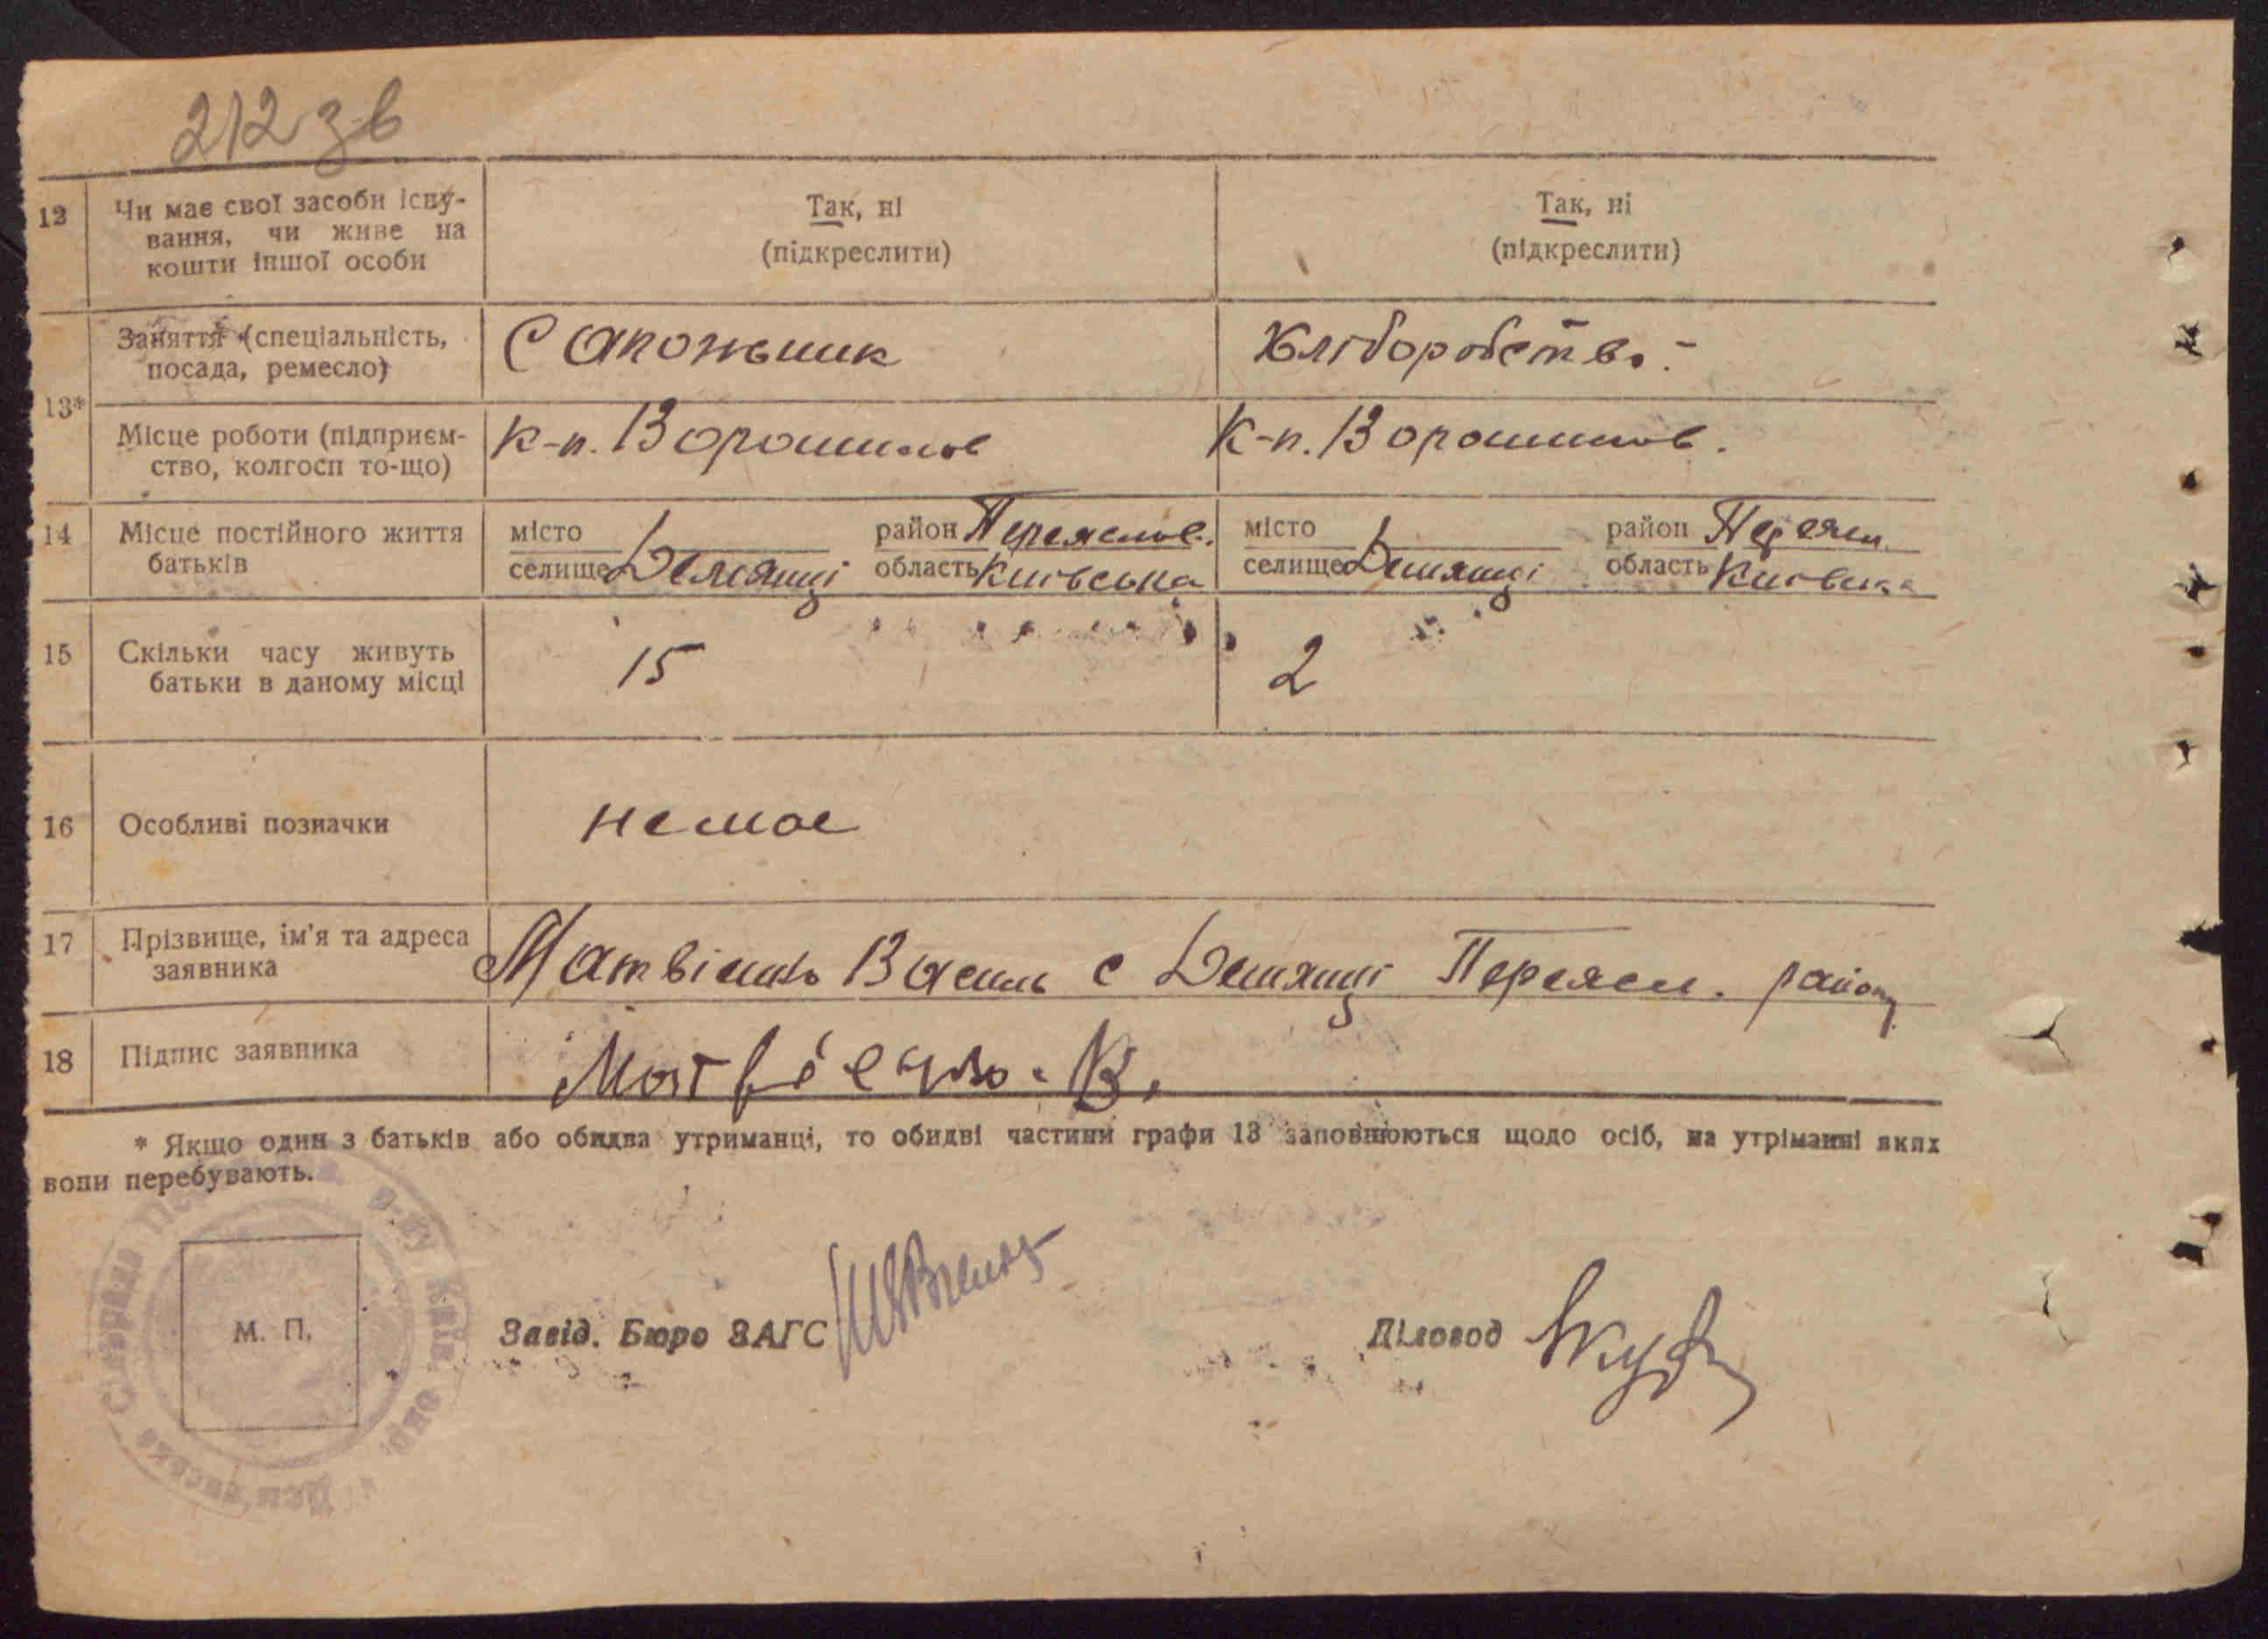 212 зв
12 Чи має свої засоби існу-
вання, чи живе на
кошти іншої особи
Так, ні
(підкреслити)
Так, ні
(підкреслити)
13*
Заняття (спеціальність,
посада, ремесло)
Сапожьник
Хліборобство.-
Місце роботи (підприєм-
ство, колгосп то-що)
К-п. Ворошилов
К-п. Ворошилов.
14 Місце постійного життя
батьків
місто
селище Демянці
район Переяслов.
область Київська
місто
селище Демянці
район Переясл.
область Київська
15 Скільки часу живуть
батьки в даному місці
15
2
16 Особливі позначки
немає
17 Прізвище, ім'я та адреса
заявника
Матвієнко Василь с Демянці Переясл. району
18 Підпис заявника
Матвієнко. В.
* Якщо один з батьків або обидва утриманці, то обидві частини графи 13 заповнюються щодо осіб, на утріманні яких
вони перебувають.
М. П.
Завід. Бюро ЗАГС
Діловод